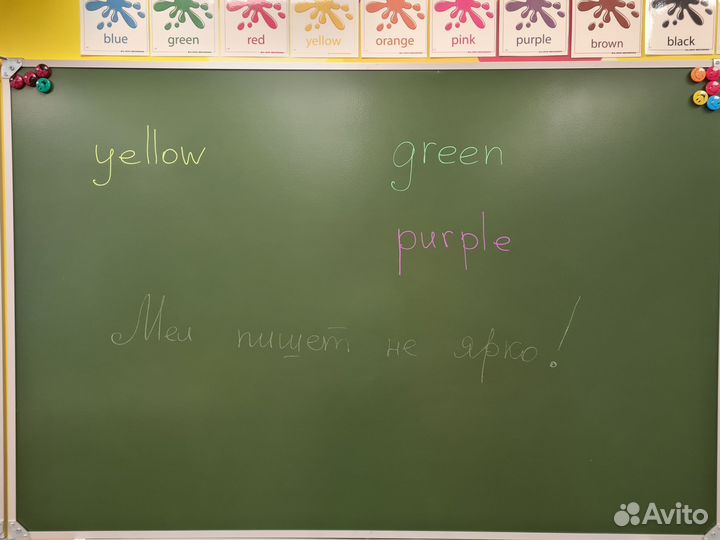 blue green red yellow orange pink purple brown black
yellow green
purple
Мел пишет не ярко!
Avito